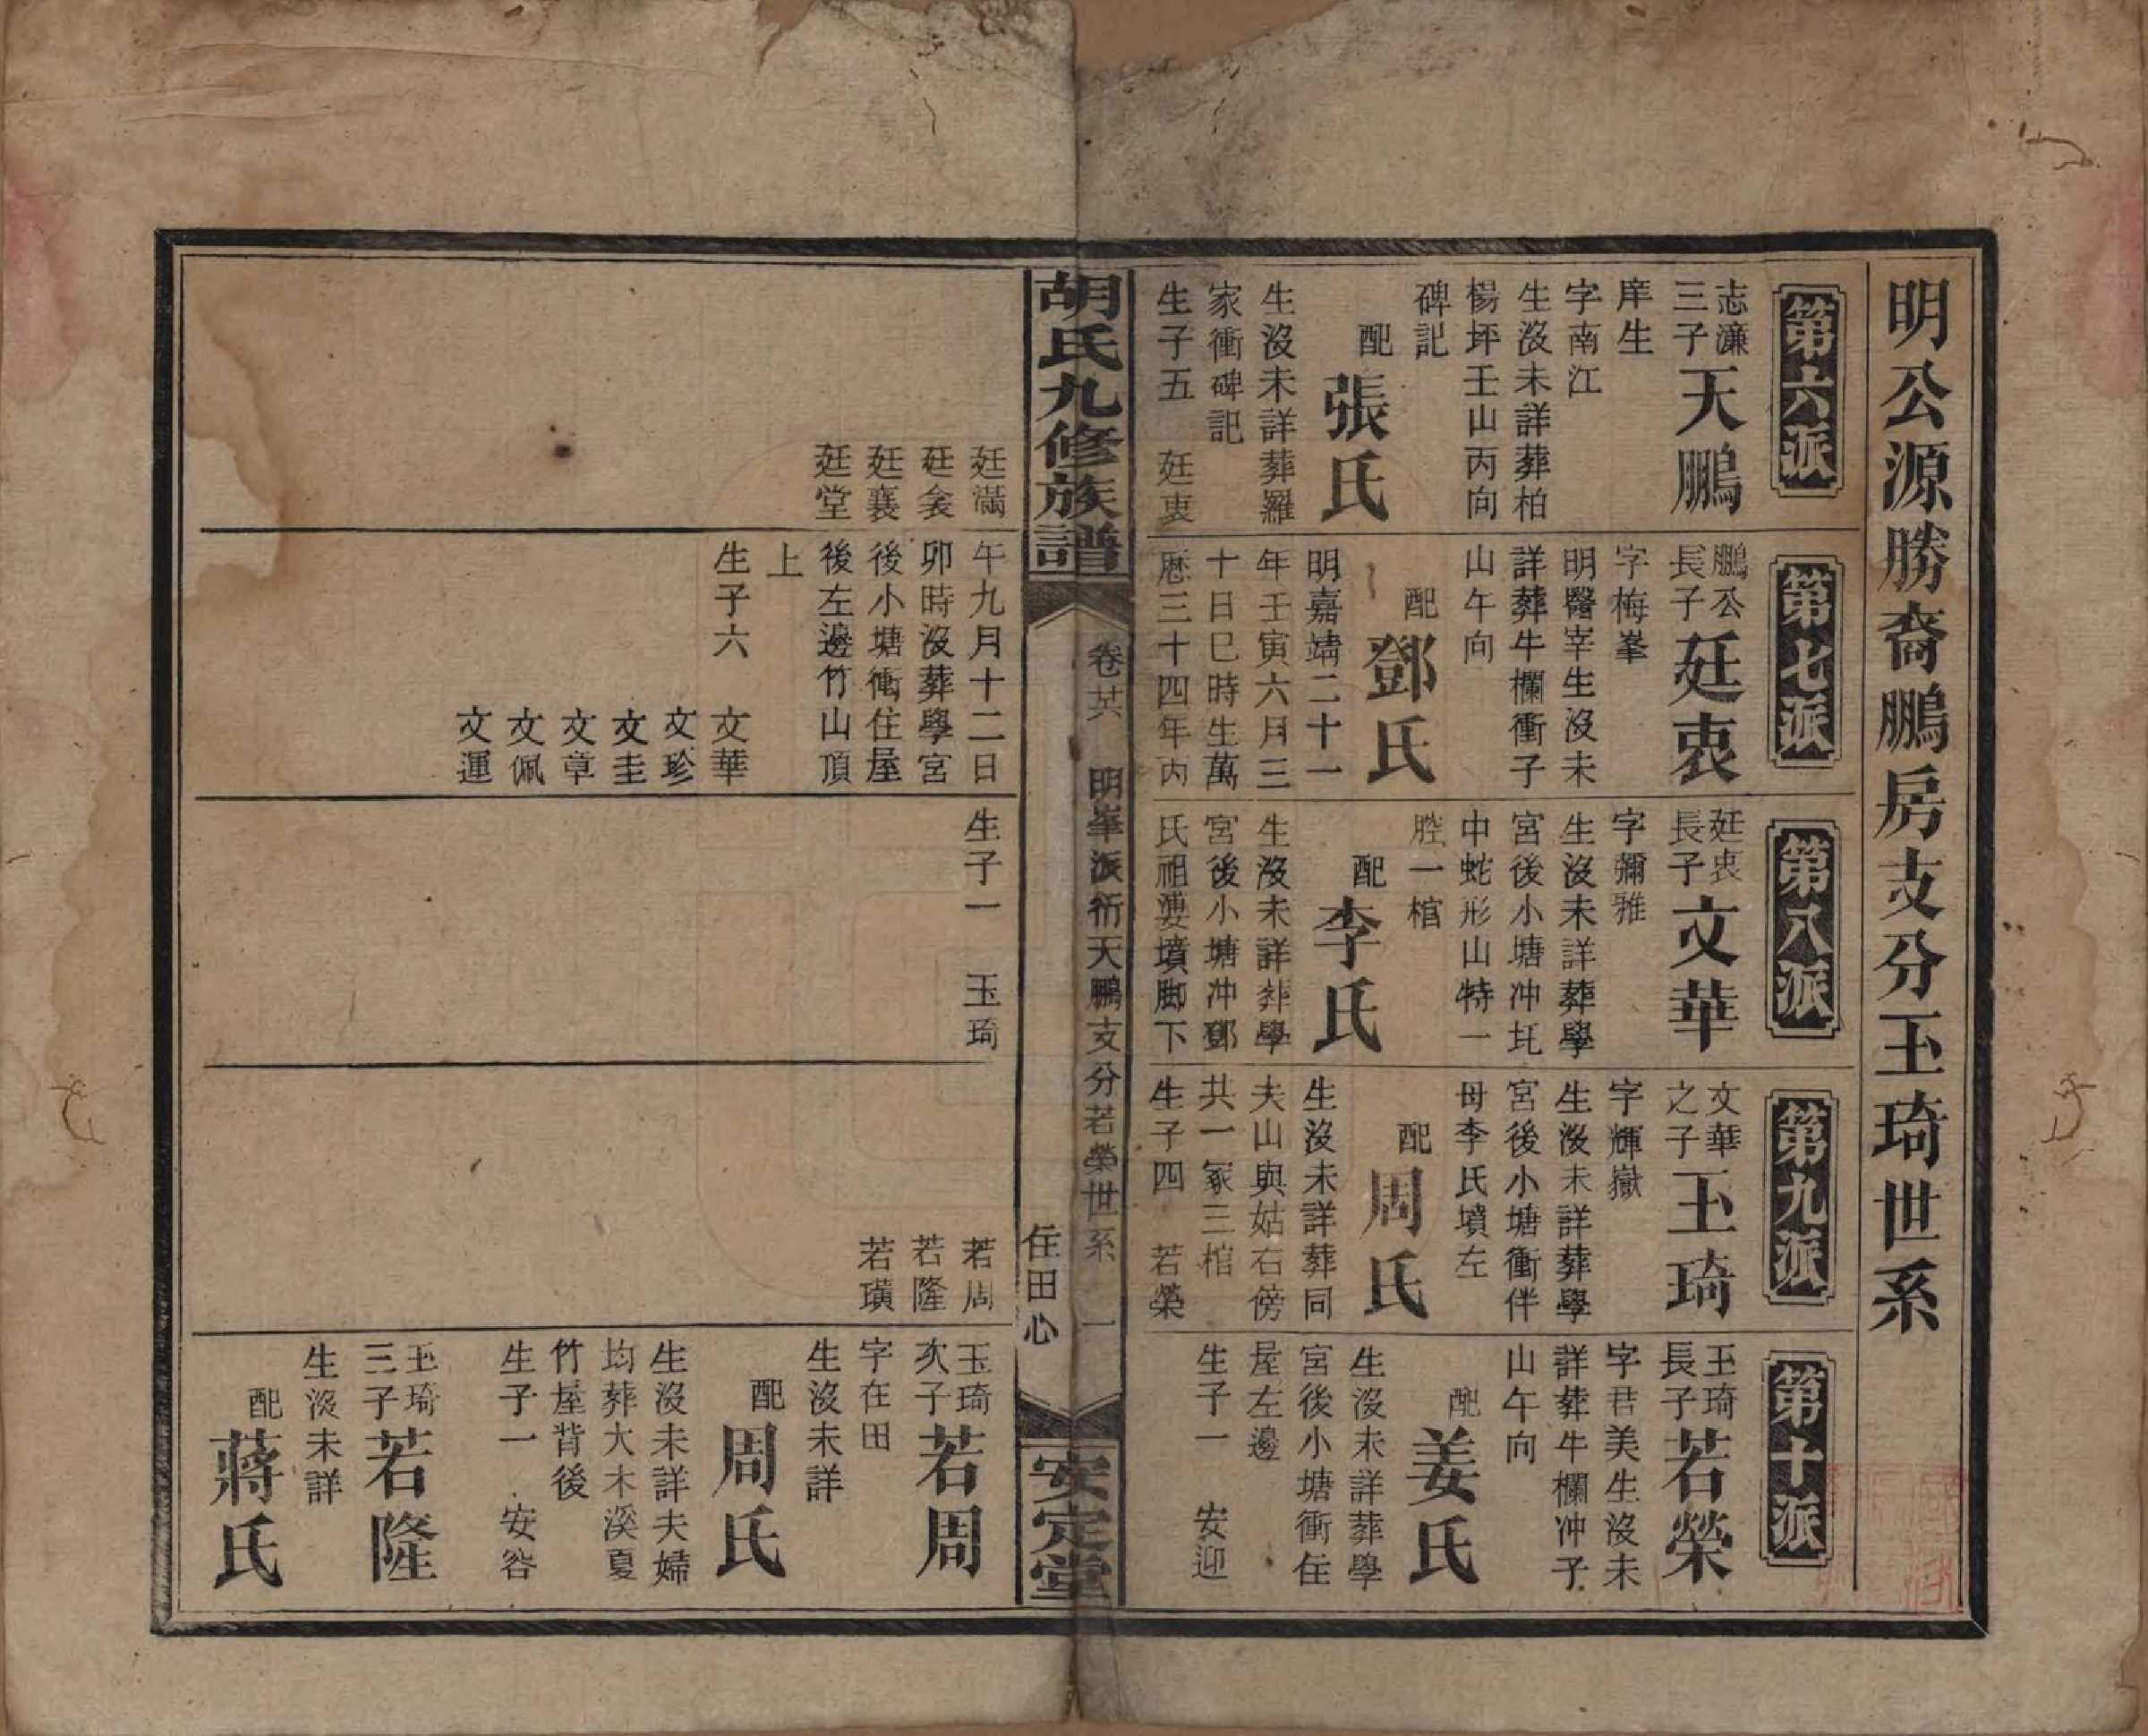 明公源勝裔鵬房支分玉琦世系
第六派
志濂
三子
天鵬
庠生
字南江
生沒未詳葬柏
楊坪壬山丙向
碑記
配
張氏
生沒未詳葬羅
家衝碑記
生子五 廷衷
第七派
鵬公
長子
廷衷
字梅峯
明醫宰生沒未
詳葬牛欄衝子
山午向
配
鄧氏
明嘉靖二十一
年壬寅六月三
十日巳時生萬
歷三十四年丙
第八派
廷衷
長子
文華
字彌雅
生沒未詳葬學
宮後小塘冲圫
中蛇形山特一
腔一棺
配
李氏
生沒未詳葬學
宮後小塘冲鄧
氏祖婆墳脚下
第九派
文華
之子
玉琦
字輝嶽
生沒未詳葬學
宮後小塘衝伴
母李氏墳左
配
周氏
生沒未詳葬同
夫山與姑右傍
共一冢三棺
生子四 若榮
第十派
玉琦
長子
若榮
字君美生沒未
詳葬牛欄冲子
山午向
配
姜氏
生沒未詳葬學
宮後小塘衝住
屋左邊
生子一 安迎
胡氏九修族譜
明峯派衍天鵬支分若榮世系 一
住田心
安定堂
廷滿
廷襄
廷堂
午九月十二日
卯時沒葬學宮
後小塘衝住屋
後左邊竹山頂
上
生子六 文華
文珍
文圭
文章
文佩
文運
生子一 玉琦
若周
若隆
若璜
玉琦
次子
若周
字在田
生沒未詳
配
周氏
生沒未詳夫婦
均葬大木溪夏
竹屋背後
生子一 安容
玉琦
三子
若隆
生沒未詳
配
蔣氏